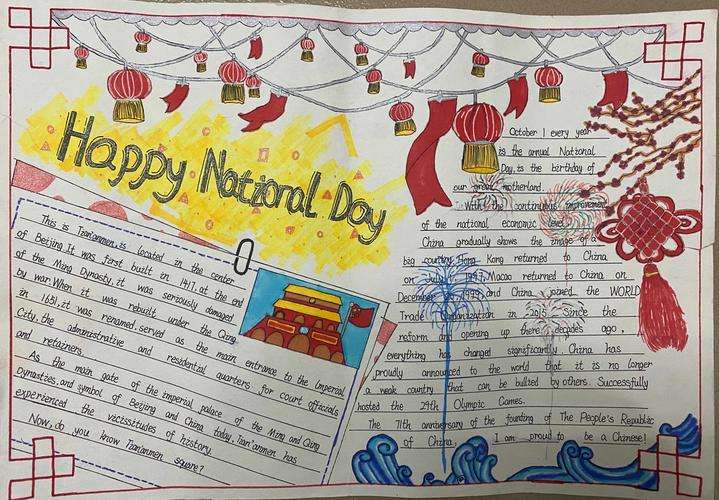 Happy National Day
This is Tian'anmen,is located in the center
of Beijing.It was first built in 1417,at the end
of the Ming Dynasty, it was seriously damaged
by war.When it was rebuilt under the Qing
in 1651,it was renamed.served as the main entrance to the Imperial
City, the administrative and residential quarters for court officials
and retainers.
As the main gate of the imperial palace of the Ming and Qing
Dynasties,and symbol of Beijing and China today,Tian'anmen has
experienced the vicissitudes of history.
Now, do you know Tian'anmen square?
October 1 every year
is the annual National
Day, is the birthday of
our great motherland.
With the continuous improvement
of the national economic level,
China gradually shows the image of a
big country Hong Kong returned to China
on July 1997, Macao returned to China on
December 1999 and China joined the WORLD
Trade Organization in Since the
reform and opening up there decades ago,
everything has changed significantly China has
proudly announced to the world that it is no longer
a weak country that can be bullied by others. Successfully
hosted the 29th Olympic Games.
The 71th anniversary of the founding of The People's Republic
of China, I am proud to be a Chinese!